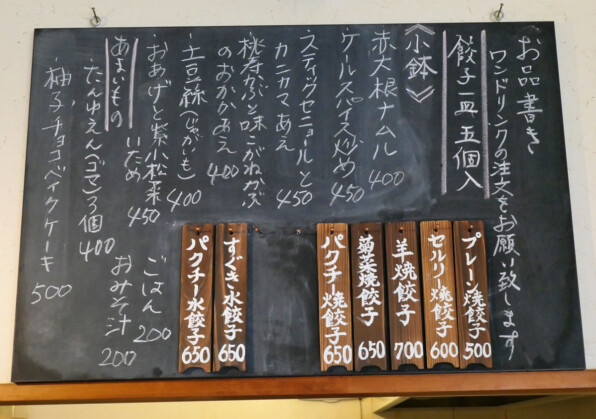 お品書き
ワンドリンクの注文をお願い致します
餃子一皿 五個入
《小鉢》
赤大根ナムル 400
ケールスパイス炒め 450
スティックセニョールと
カニカマあえ 450
桃かぶと味こがねかぶ
のおかかあえ 400
土豆絲(じゃがいも) 400
おあげと紫小松菜
いため 450
あまいもの
たんゆえん(ゴマ)3個 400
柚子チョコベイクケーキ 500
ごはん 200
おみそ汁 200
プレーン焼餃子 500
セルリー焼餃子 600
羊焼餃子 700
菊菜焼餃子 650
パクチー焼餃子 650
水餃子 650
パクチー水餃子 650